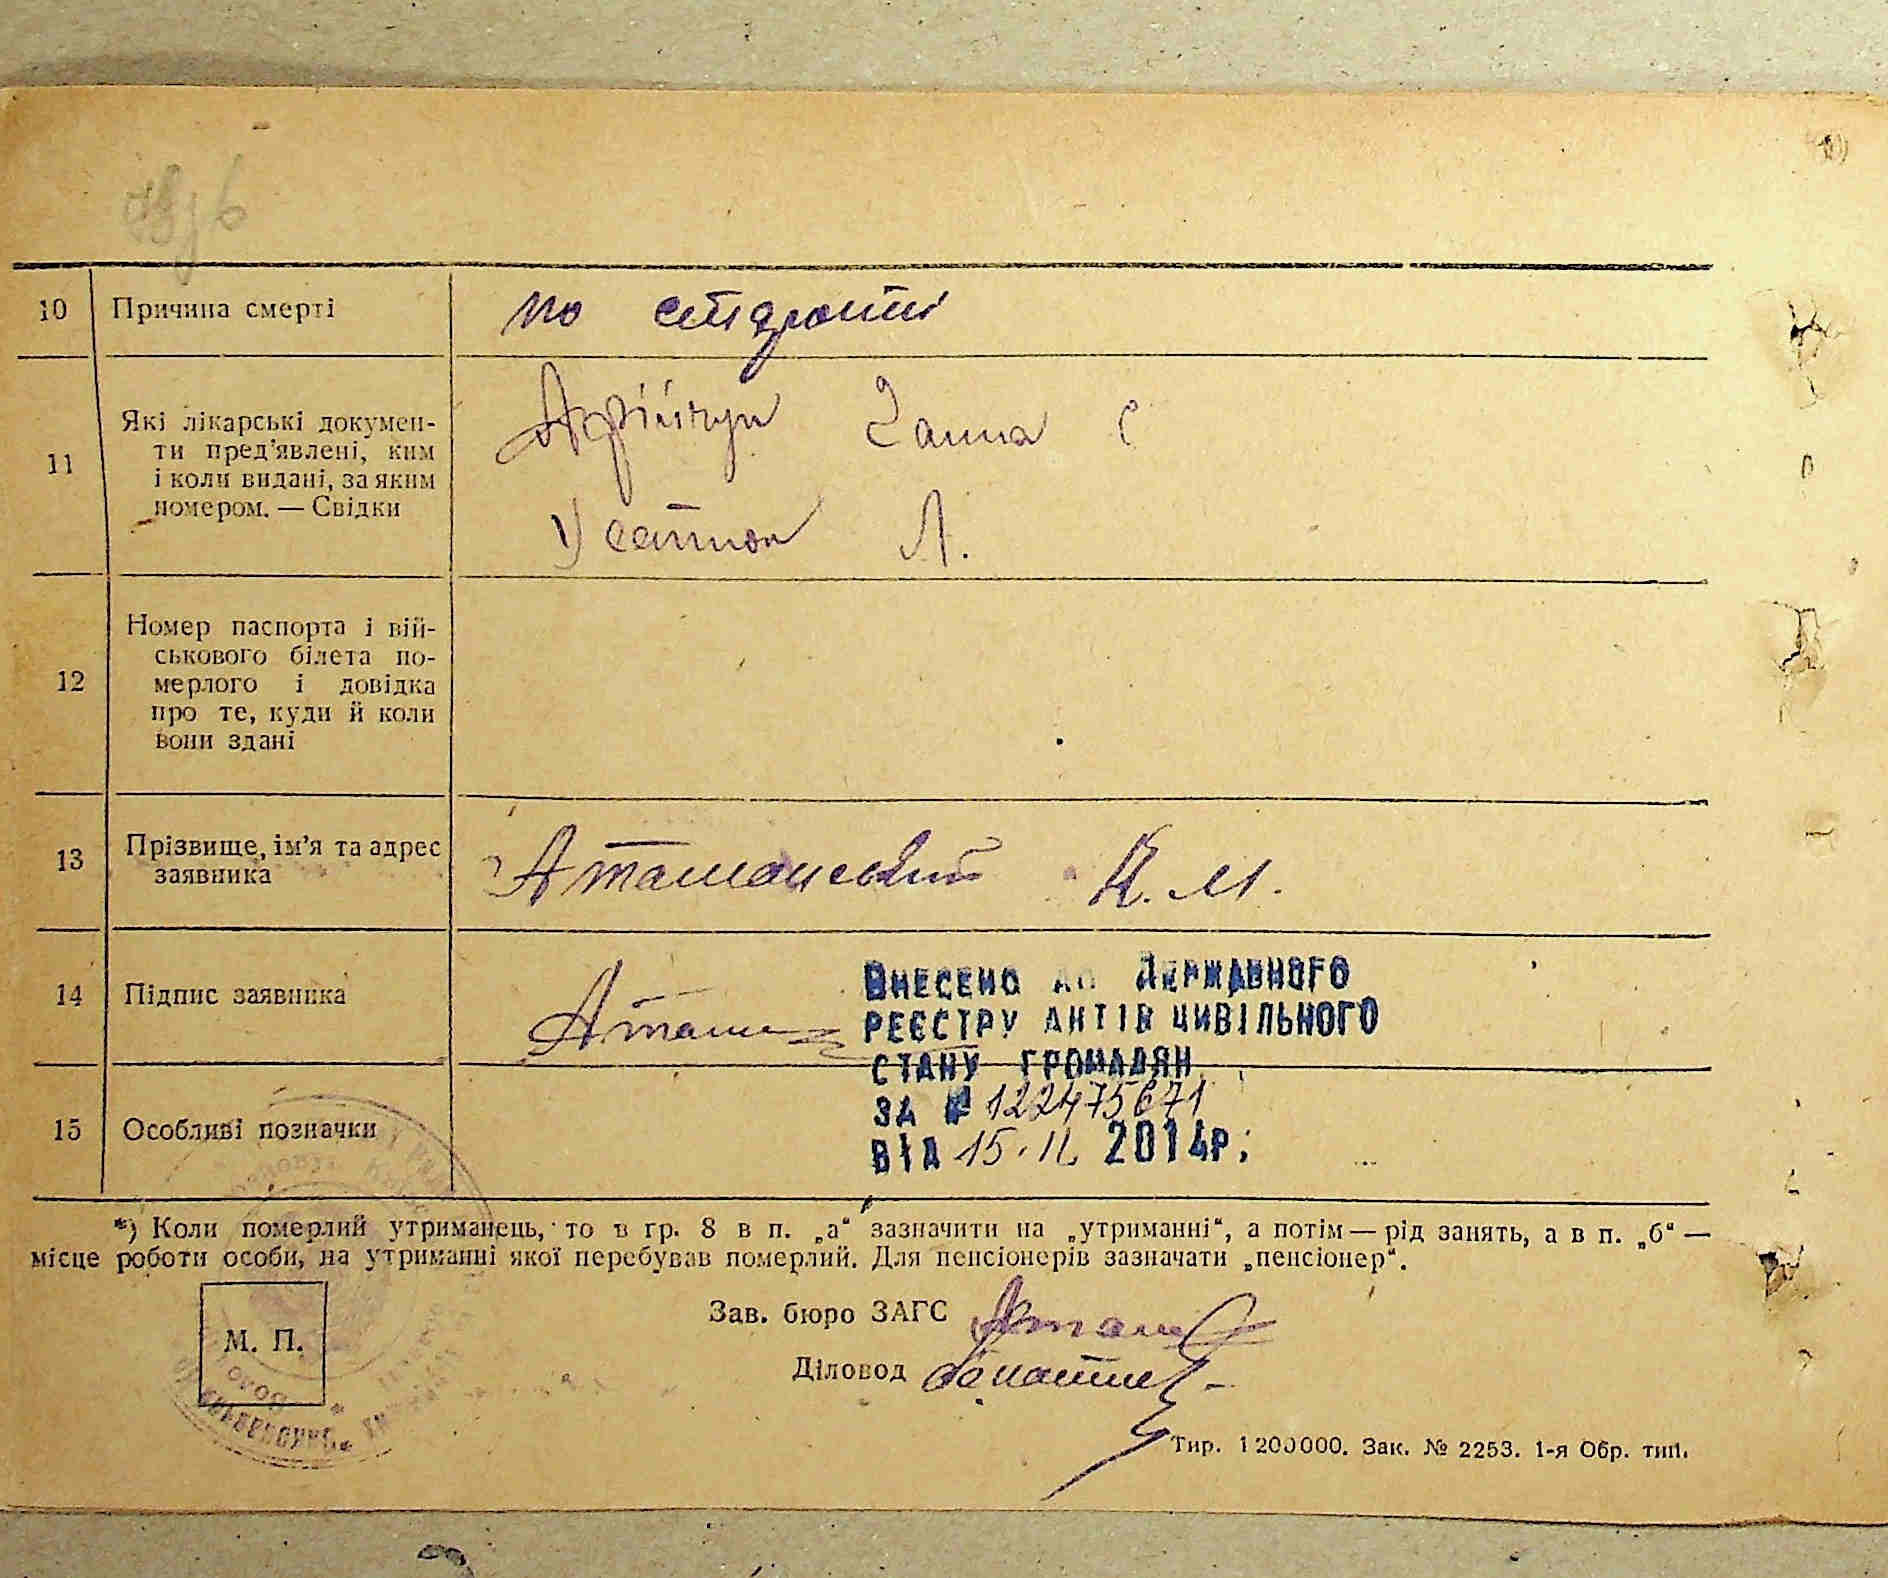 10 Причина смерті по старотті
11 Які лікарські докумен-
ти пред'явлені, ким
і коли видані, за яким
номером. — Свідки
Ганна С
Л.
12 Номер паспорта і вій-
ськового білета по-
мерлого і довідка
про те, куди й коли
вони здані
13 Прізвище, ім'я та адрес
заявника
Атаманський К. М.
14 Підпис заявника Атам
Внесено до Державного
реєстру актів цивільного
стану громадян
за № 122475671
15 Особливі позначки
від 15.11 2014р.
*) Коли померлий утриманець, то в гр. 8 в п. „а“ зазначити на „утриманні“, а потім — рід занять, а в п. „б“ —
місце роботи особи, на утриманні якої перебував померлий. Для пенсіонерів зазначати „пенсіонер“.
Зав. бюро ЗАГС
М. П.
Діловод
Тир. 1200000. Зак. № 2253. 1-я Обр. тип.